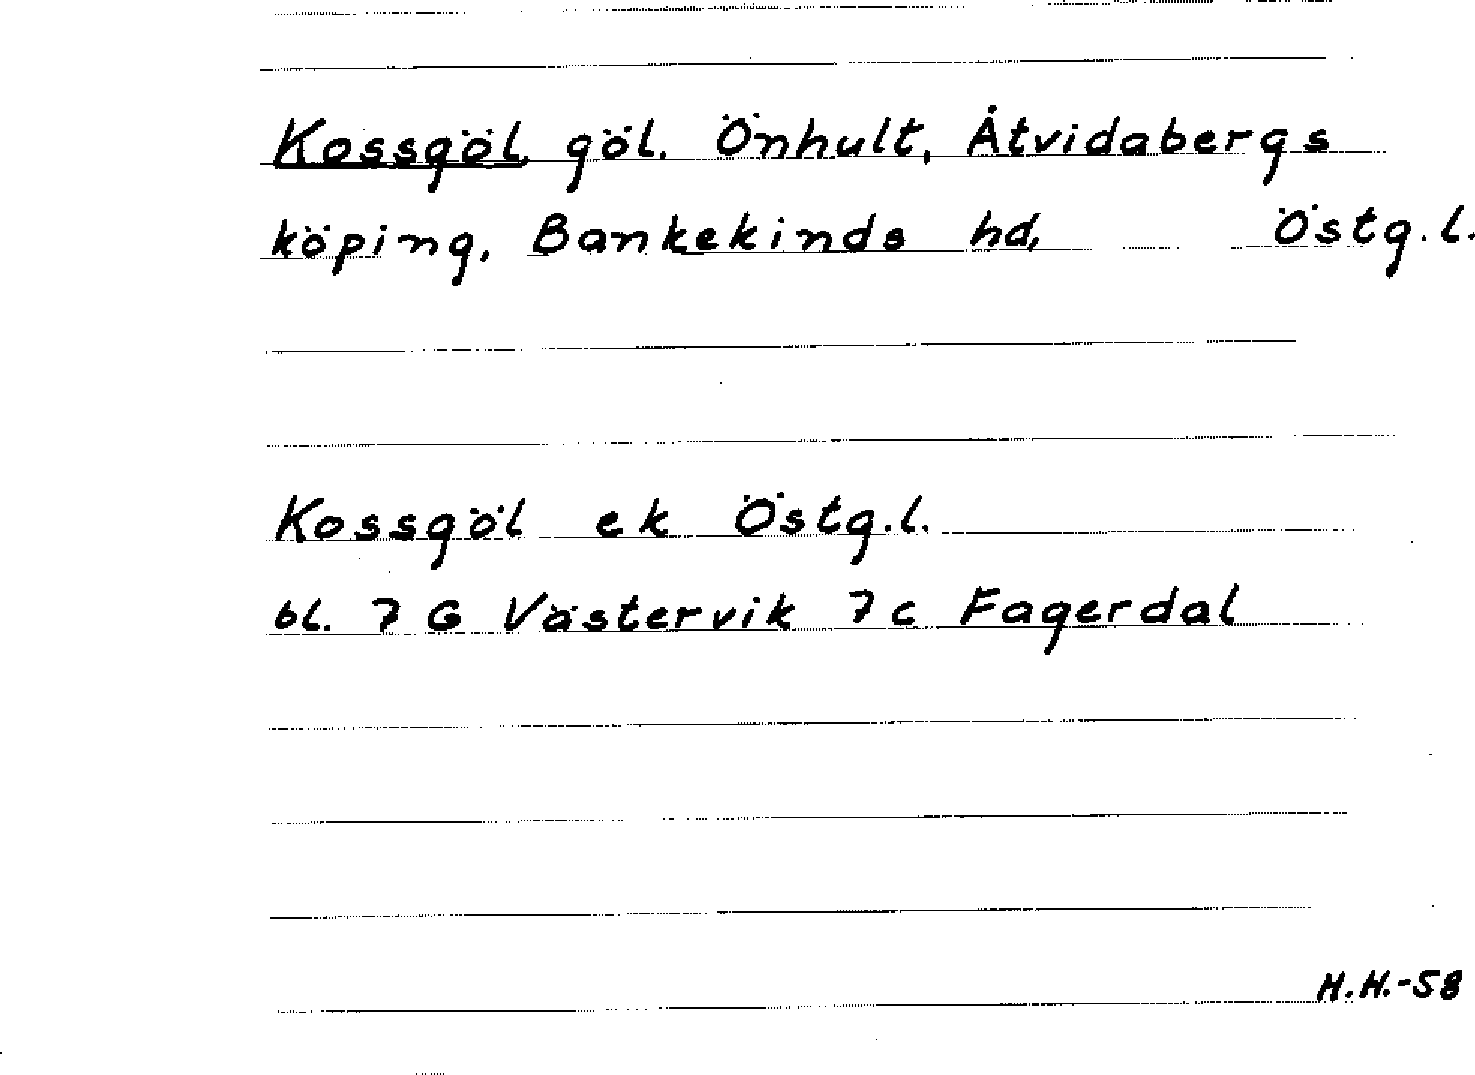 Kossgöl, göl. Önhult, Åtvidabergs
köping, Bankekinds hd, Östg.l.
Kossgöl ek Östg.l.
bl. 7 G Västervik 7 c Fagerdal
H.H.-58